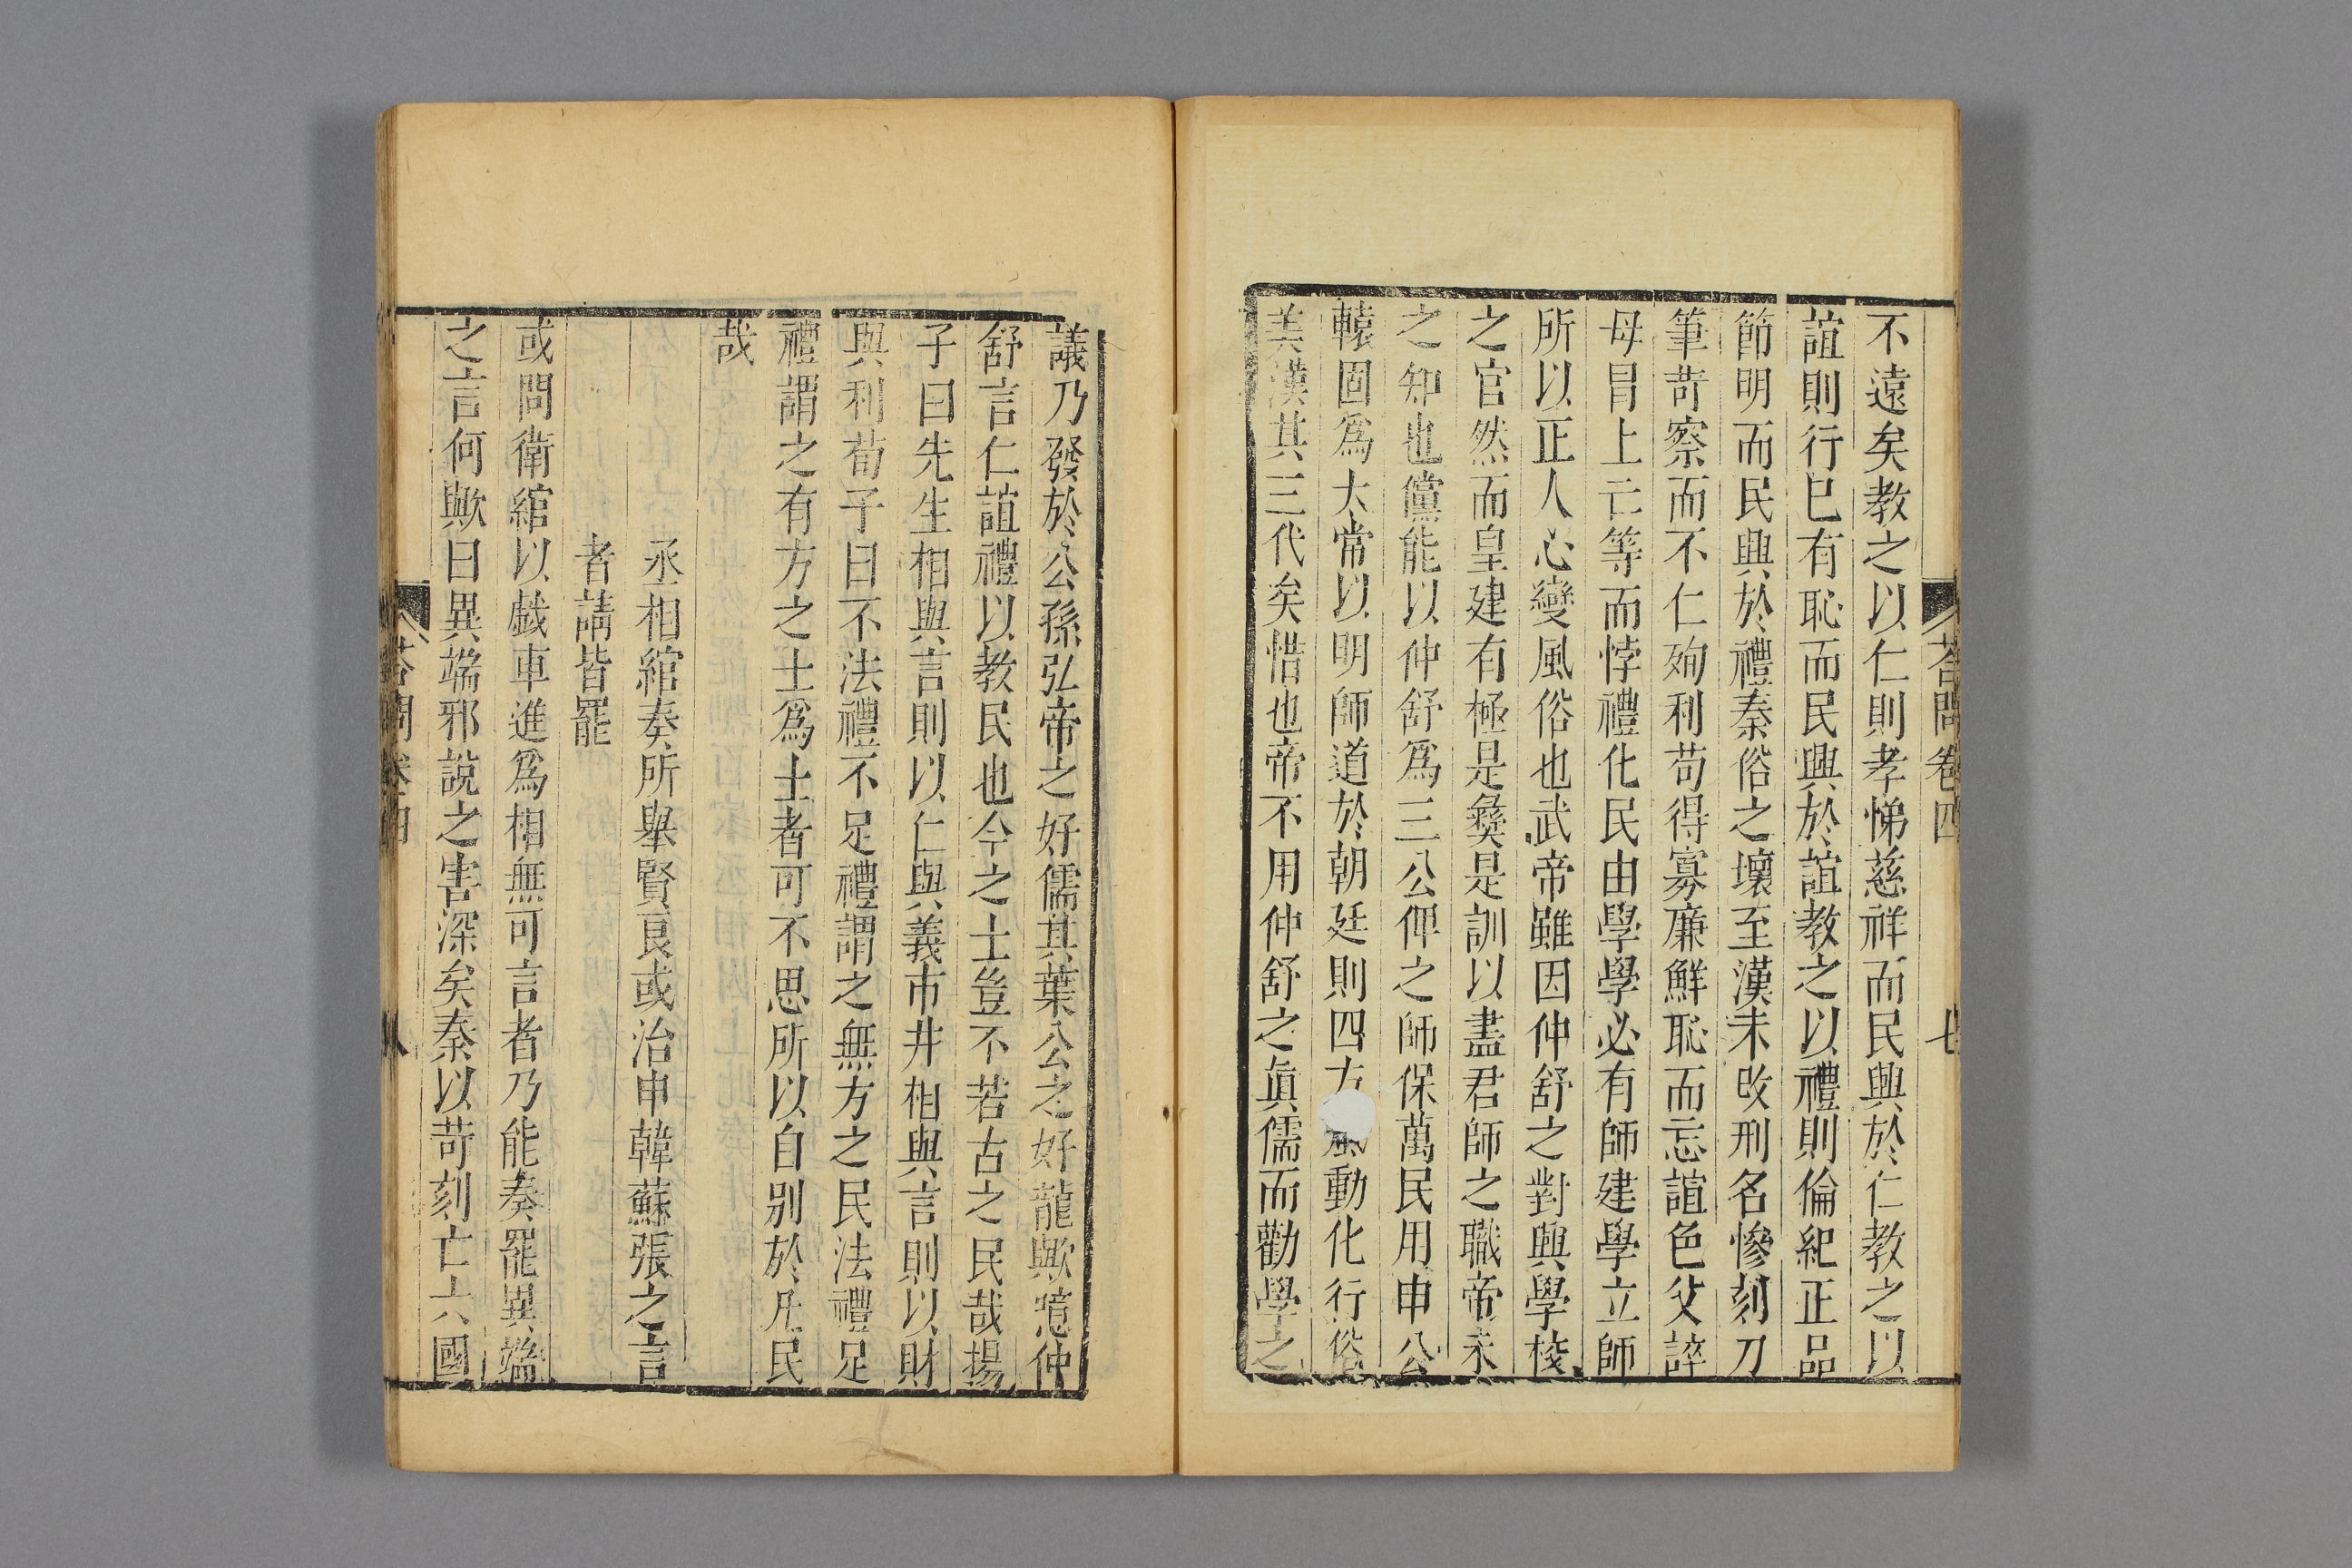 荅問卷四 七
不遠矣教之以仁則孝悌慈祥而民興於仁教之以
誼則行巳有恥而民興於誼教之以禮則倫紀正品
節明而民興於禮秦俗之壞至漢未改刑名慘刻刀
筆苛察而不仁殉利苟得寡廉鮮恥而忘誼色父誶
母冒上亡等而悖禮化民由學學必有師建學立師
所以正人心變風俗也武帝雖因仲舒之對興學校
之官然而皇建有極是彝是訓以盡君師之職帝未
之知也儻能以仲舒爲三公俾之師保萬民用申公
轅固爲大常以明師道於朝廷則四方風動化行俗
美漢其三代矣惜也帝不用仲舒之眞儒而勸學之
議乃發於公孫弘帝之好儒其葉公之好龍歟噫仲
舒言仁誼禮以教民也今之士豈不若古之民哉揚
子曰先生相與言則以仁與義市井相與言則以財
與利荀子曰不法禮不足禮謂之無方之民法禮足
禮謂之有方之士爲士者可不思所以自別於凡民
哉
丞相綰奏所舉賢良或治申韓蘇張之言
者請皆罷
或問衛綰以戲車進爲相無可言者乃能奏罷異端
之言何歟曰異端邪說之害深矣秦以苛刻亡六國
荅問卷四 八